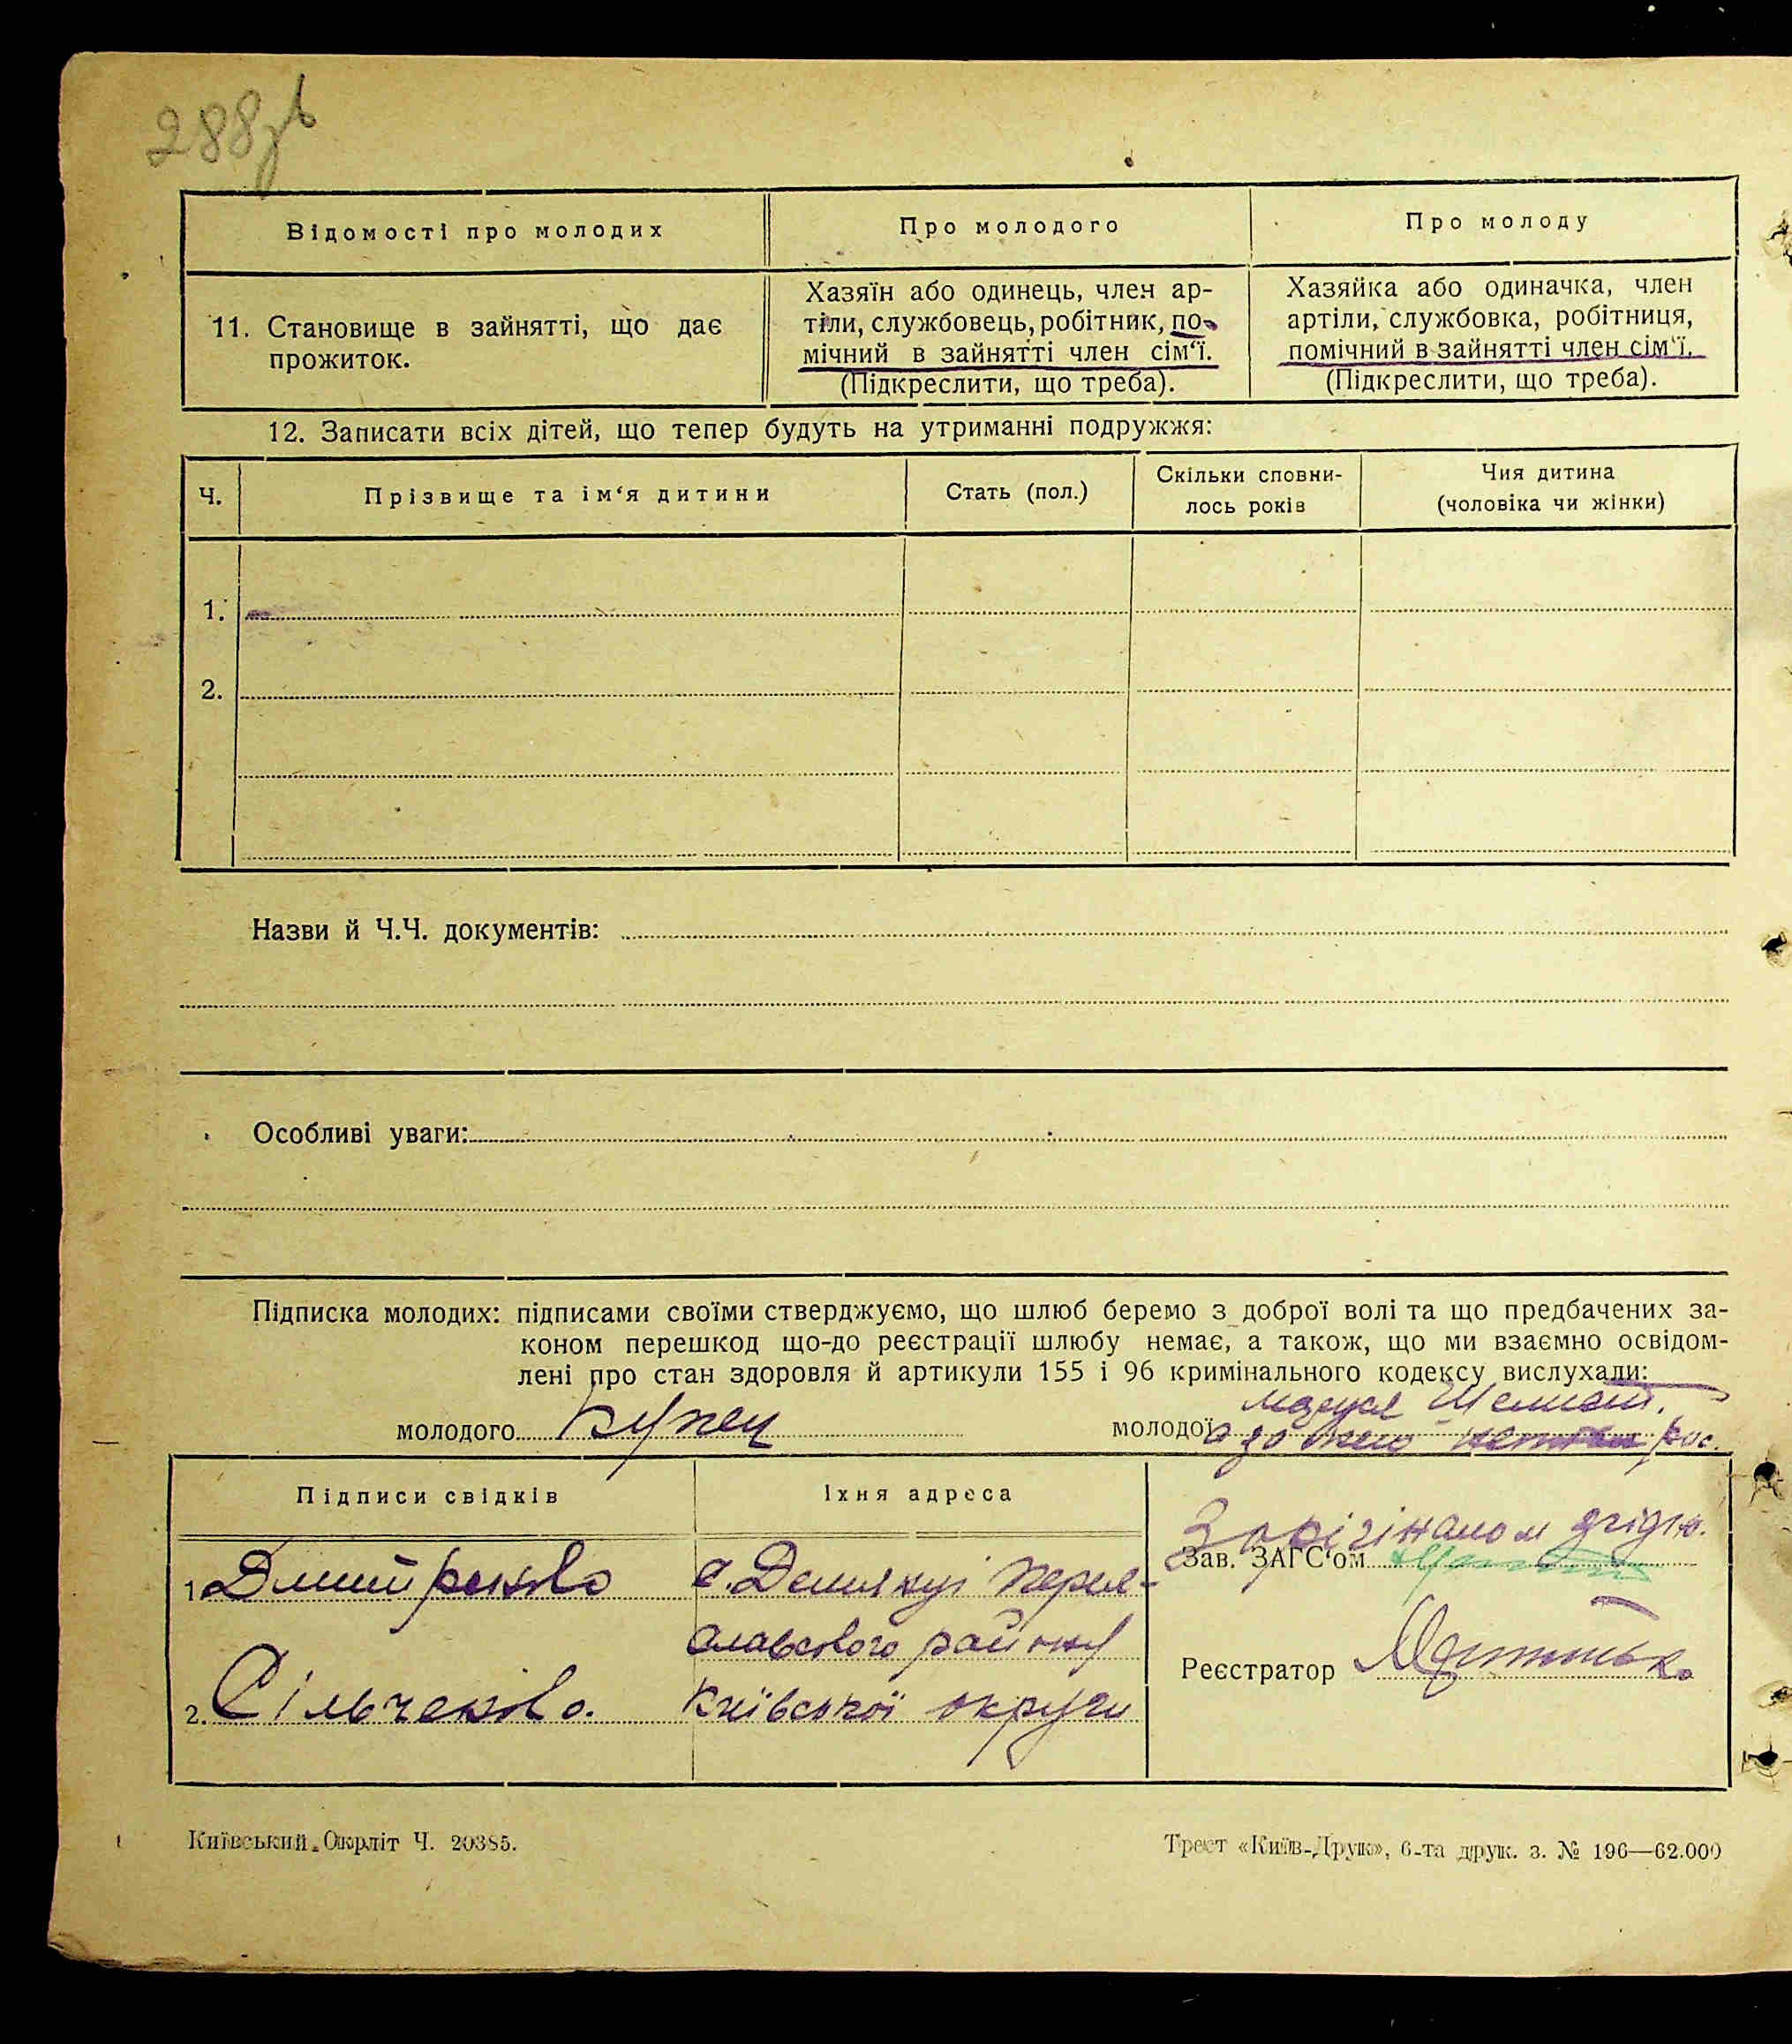 288зв
Відомості про молодих
Про молодого
Про молоду
11. Становище в зайнятті, що дає
прожиток.
Хазяїн або одинець, член ар-
тіли, службовець, робітник, по-
мічний в зайнятті член сім‘ї.
(Підкреслити, що треба).
Хазяйка або одиначка, член
артіли, службовка, робітниця,
помічний в зайнятті член сім‘ї.
(Підкреслити, що треба).
12. Записати всіх дітей, що тепер будуть на утриманні подружжя:
Ч.
Прізвище та ім‘я дитини
Стать (пол.)
Скільки сповни-
лось років
Чия дитина
(чоловіка чи жінки)
1.
2.
Назви й Ч.Ч. документів:
Особливі уваги:
Підписка молодих: підписами своїми стверджуємо, що шлюб беремо з доброї волі та що предбачених за-
коном перешкод що-до реєстрації шлюбу немає, а також, що ми взаємно освідом-
лені про стан здоровля й артикули 155 і 96 кримінального кодексу вислухали:
молодого Купец
молодої
Підписи свідків
Їхня адреса
1.
с. Демянці Перея-
славського району
2. Сільченко.
Київської округи
З орігіналом згідно.
Зав. ЗАГС‘ом
Реєстратор
Київський Окрліт Ч. 20385.
Трест «Київ-Друк», 6-та друк. з. № 196—62.000